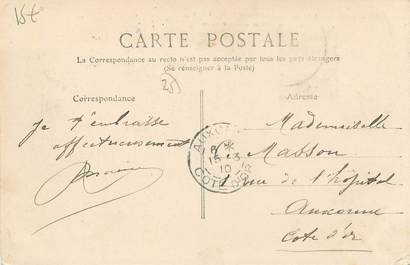 15€
CARTE POSTALE
La Correspondance au recto n'est pas acceptée par tous les pays étrangers
(Se renseigner à la Poste)
25
Correspondance
Adresse
Je t'embrasse
affectueusement
Mademoiselle
Masson
rue de l'hôpital
Auxonne
Côte d'or
AUXONNE
15 - 3
10
COTE D'OR